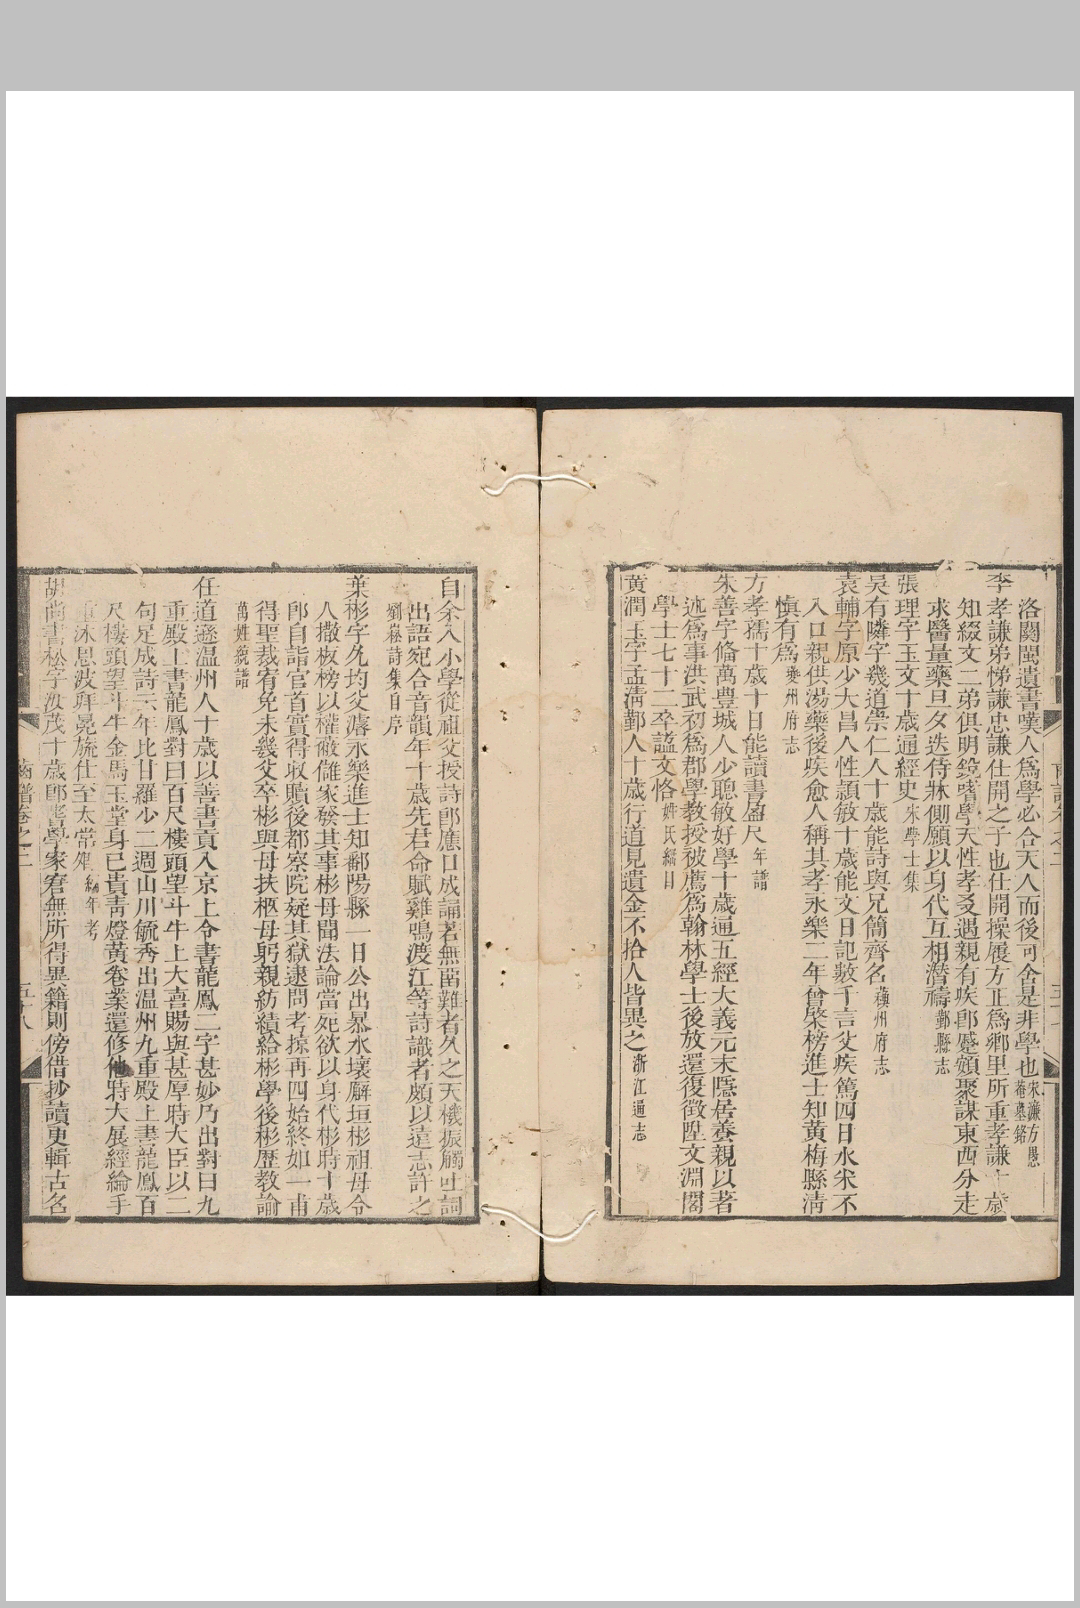 洛關閩遺書嘆人爲學必合天人而後可舍是非學也宋濂方愚菴墓銘
李孝謙弟悌謙忠謙仕開之子也仕開操履方正爲鄕里所重孝謙十歲
知綴文二弟俱明鏡嗜學天性孝爻遇親有疾卽蹙頞聚謀東西分走
求醫量藥旦夕迭侍牀側願以身代互相潛禱鄞縣志
張理字玉文十歲通經史宋學士集
吳有隣字幾道崇仁人十歲能詩與兄簡齊名蘓州府志
袁輔字原少大昌人性頴敏十歲能文日記數千言父疾篤四日水米不
入口親供湯藥後疾愈人稱其孝永樂二年曾棨榜進士知黃梅縣淸
愼有爲夔州府志
方孝孺十歲十日能讀書盈尺年譜
朱善字偹萬豊城人少聰敏好學十歲通五經大義元末隱居養親以著
述爲事洪武初爲郡學教授被薦爲翰林學士後放還復徵陞文淵閣
學士七十二卒謚文恪姓氏綱目
黃潤玉字孟淸鄞人十歲行道見遺金不拾人皆異之浙江通志
自余入小學從祖父授詩卽應口成誦若無甾難者久之天機振觸吐詞
出語宛合音韻年十歲先君命賦雞鳴渡江等詩識者頗以遠志許之
劉崧詩集自序
葉彬字允均父濬永樂進士知鄱陽縣一日公出暴水壞廨垣彬祖母令
人撒板榜以權蔽讎家發其事彬母聞法論當死欲以身代彬時十歲
卽自詣官首實得收贖後都察院疑其獄逮問考掠再四始終如一甫
得聖裁宥免未幾父卒彬與母扶柩母躬親紡績給彬學後彬歷教諭
萬姓統譜
任道遜温州人十歲以善書貢入京上令書龍鳳二字甚妙乃出對曰九
重殿上書龍鳳對曰百尺樓頭望斗牛上大喜賜與甚厚時大臣以二
句足成詩云年比甘羅少二週山川毓秀出温州九重殿上書龍鳳百
尺樓頭望斗牛金馬玉堂身已貴靑燈黃卷業還修他時大展經綸手
重沐恩波拜冕旒仕至太常卿編年考
胡尚書松字汝茂十歲卽能學家窘無所得異籍則傍借抄讀更輯古名
齒譜卷之二
五十八